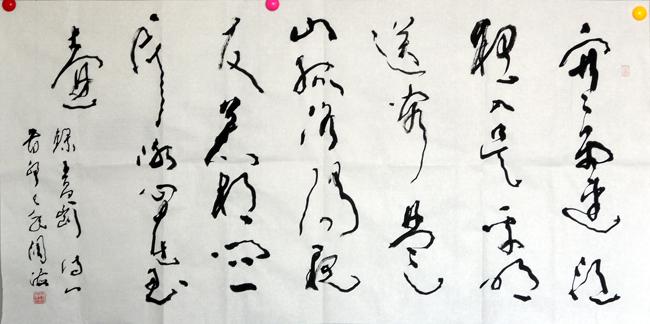 寒雨連江
夜入吳平明
送客楚
山孤洛陽親
友相問一
片冰心在玉
壺
錄王昌齡詩一
首